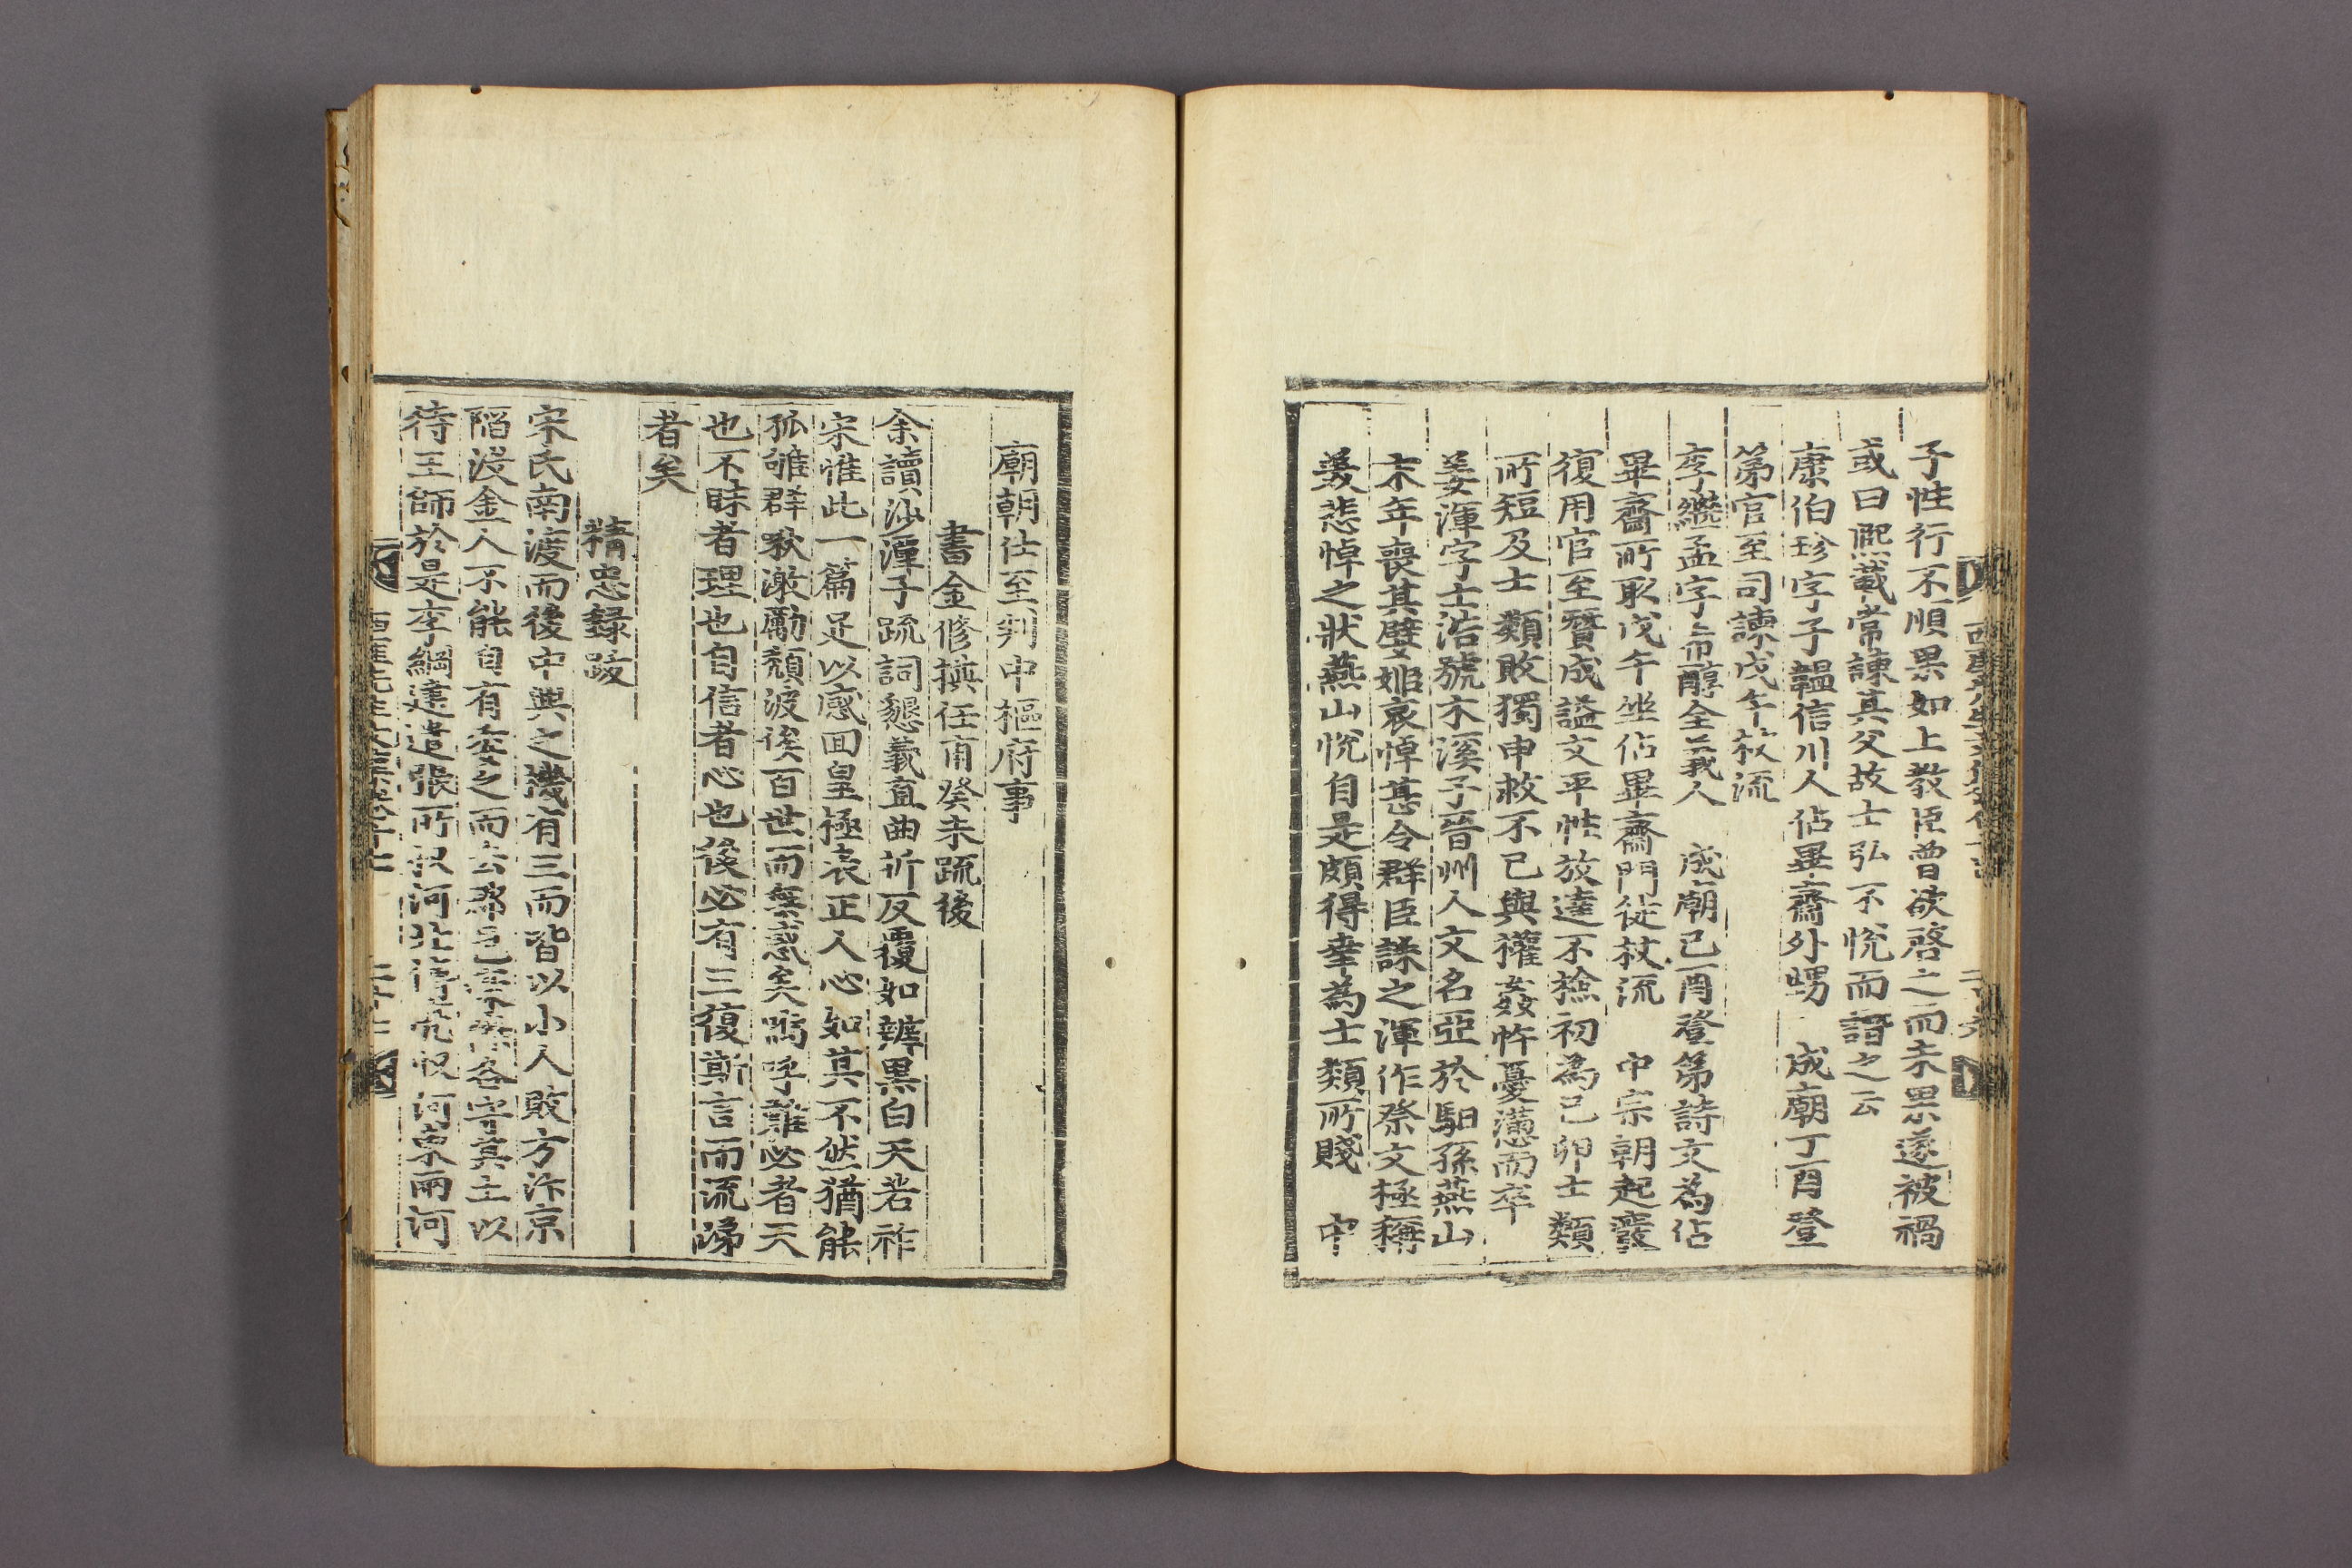 子性行不順果如上教臣曾欲啓之而未果遂被禍
或曰熙載常諫其父故士弘不悅而譖之云
康伯珍字子韞信川人佔畢齋外甥　成廟丁酉登
第官至司諫戊午杖流
李繼孟字希醇全義人　成廟己酉登第詩文為佔
畢齋所取戊午坐佔畢齋門徒杖流　中宗朝起廢
復用官至贊成謚文平性放達不撿初為己卯士類
所短及士類敗獨申救不已與權姦忤憂懣而卒
姜渾字士浩號木溪子晉州人文名亞於馹孫燕山
末年喪其嬖姬哀悼甚令群臣誄之渾作祭文極稱
美悲悼之狀燕山悅自是頗得幸為士類所賤　中
廟朝仕至判中樞府事
書金修撰任甫癸未疏後
余讀沙潭子疏詞懇義直曲折反覆如辨黑白天若祚
宋惟此一篇足以感回皇極表正人心如其不然猶能
孤雊群啾激勵頹波俟百世而無惑矣嗚呼難必者天
也不昧者理也自信者心也後必有三復斯言而流涕
者矣
精忠錄跋
宋氏南渡而後中興之機有三而皆以小人敗方汴京
陷沒金人不能自有委之而去郡邑各守其土以
待王師於是李綱建遣張所收河北傅亮收河東兩河